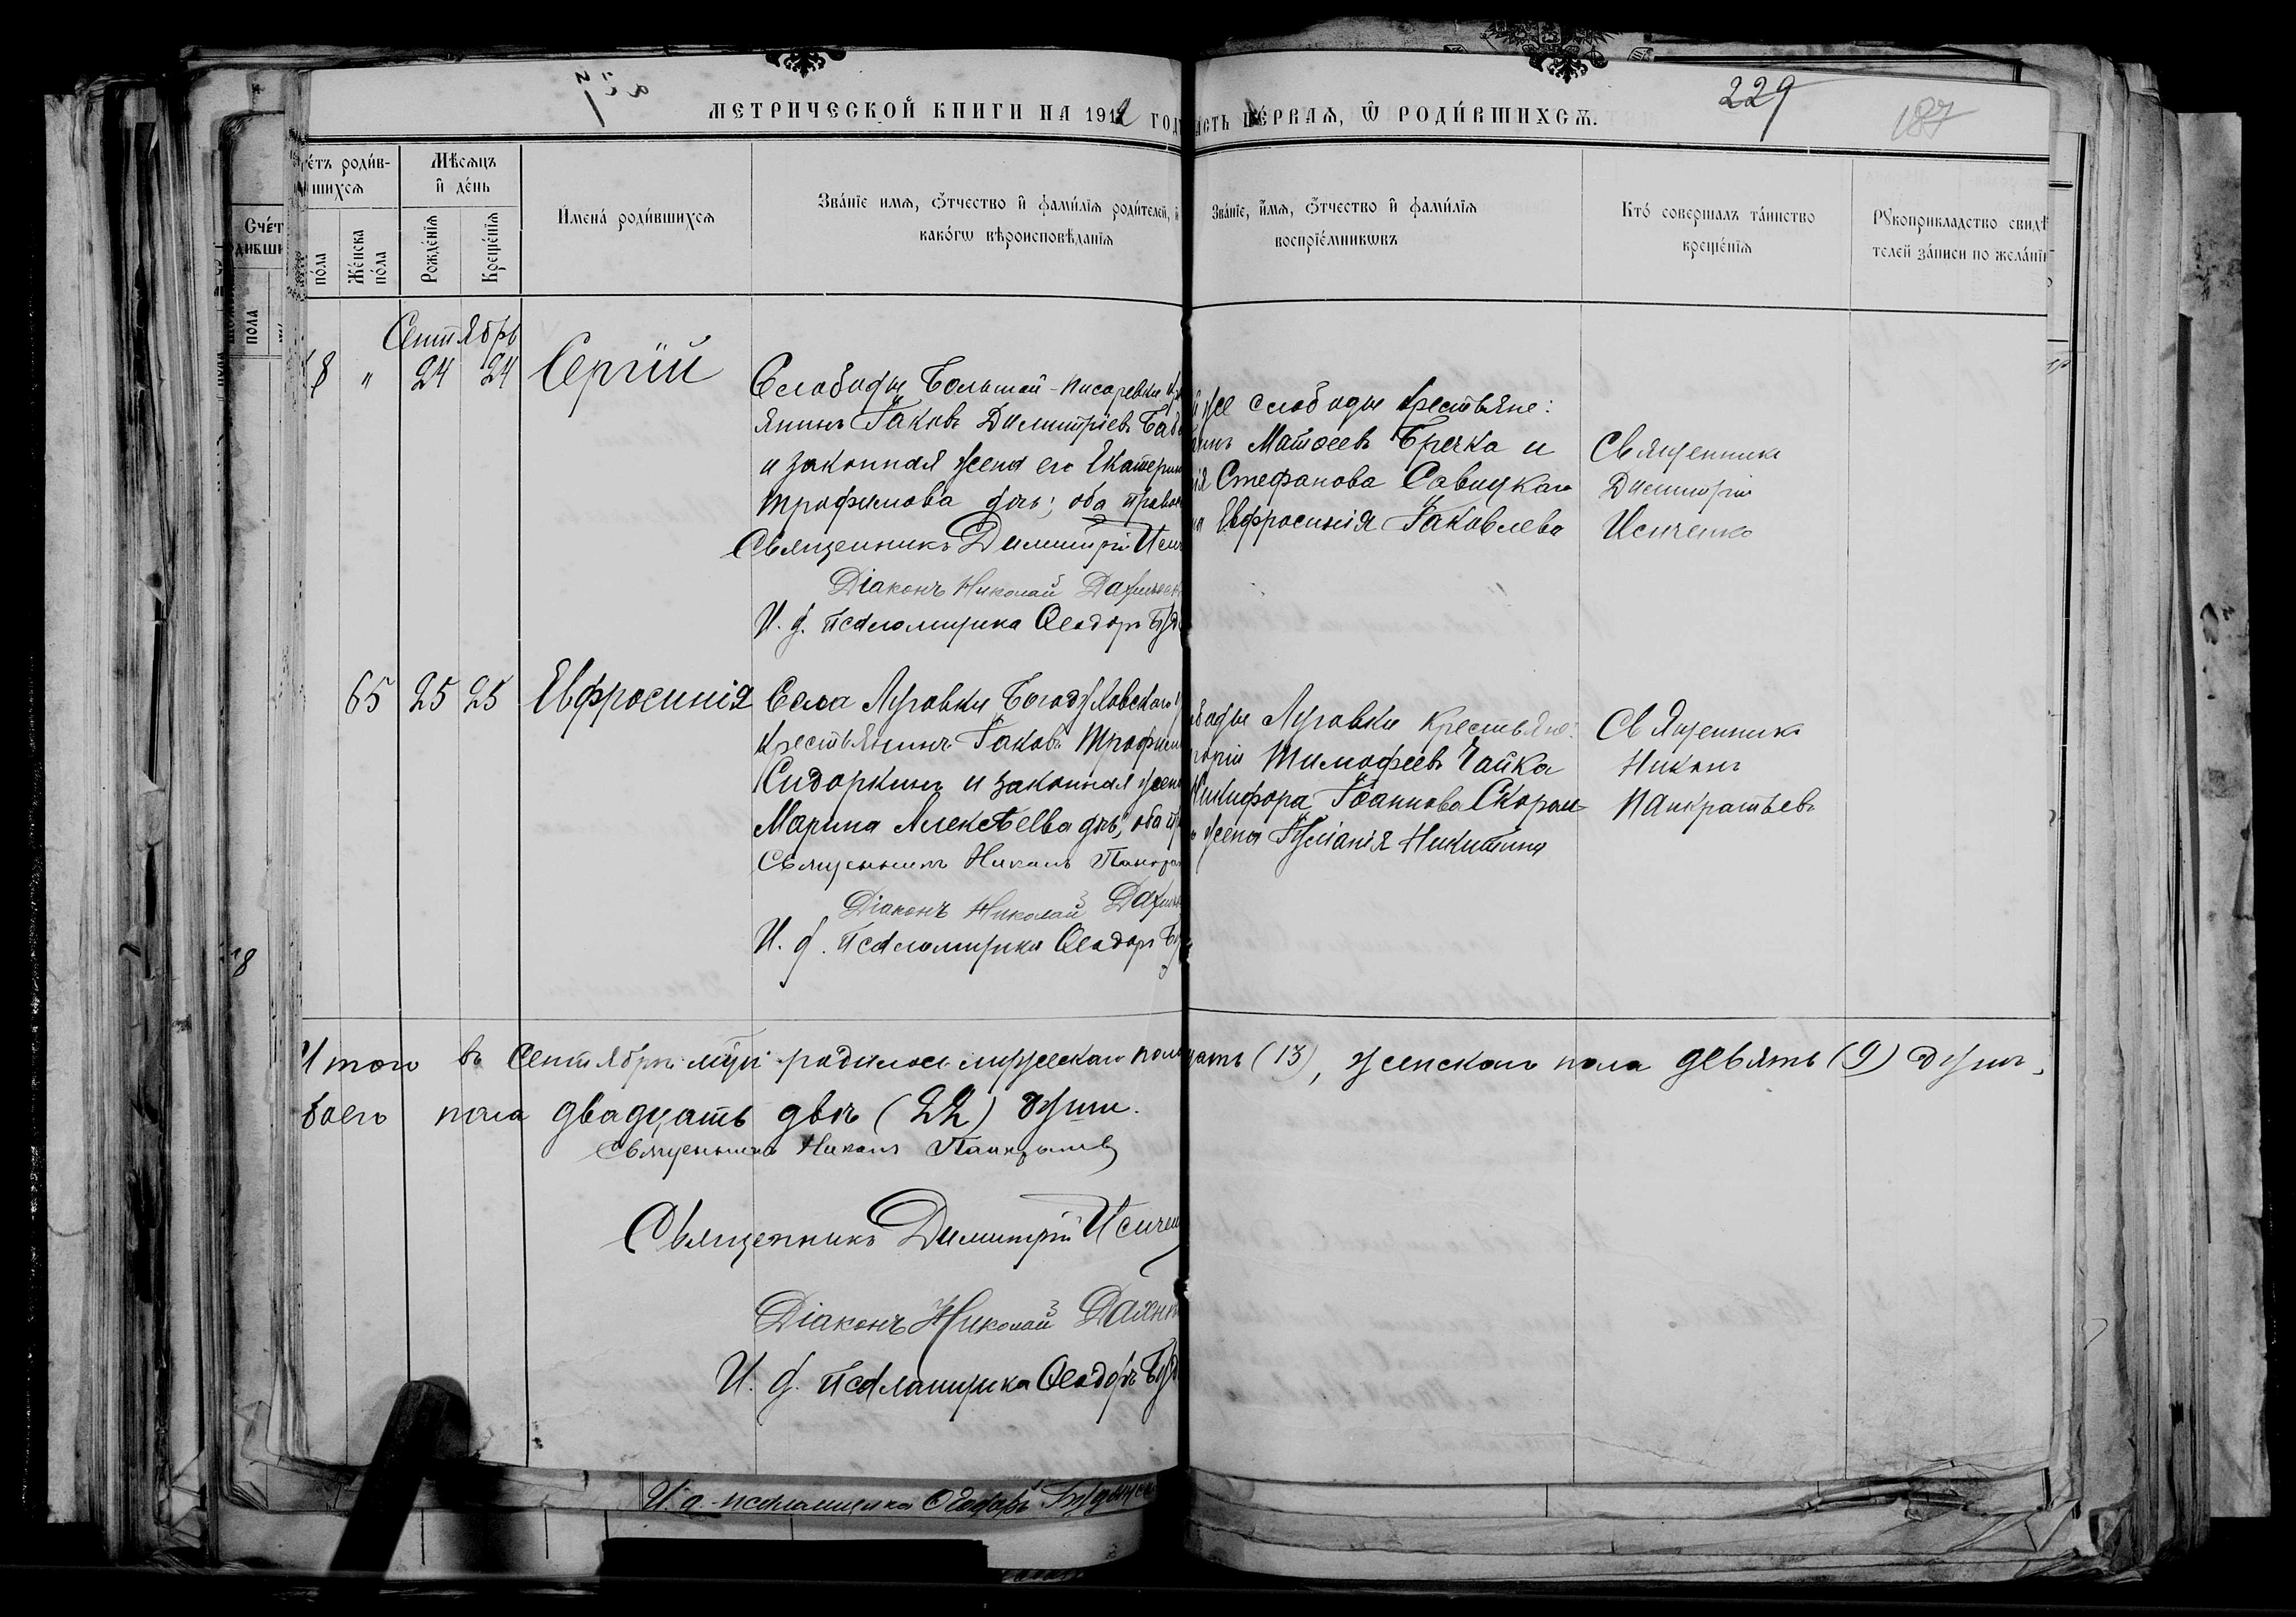 МЕТРИЧЕСКОЙ КНИГИ НА 1912 ГОД
АСТЬ ПЕРВАЯ, Ѿ РОДИ́ВШИХСЯ.
229
187
е́тъ роди́в-
шихся
Мѣсяцъ
и҆ де́нь
по́ла
Же́нска
по́ла
Рожде́нїя
Креще́нїя
И҆мена́ роди́вшихся
Зва́нїе имя, ѻ҆́тчество и҆ фами́лїя роди́телей, и
како́гѡ вѣроисповѣ́данїя
Зва́нїе, и҆́мя, ѻ҆́тчество и҆ фами́лїя
воспрїе́мникѡвъ
Кто́ соверша́лъ та́инство
креще́нїя
Рꙋкоприкладство свидѣ
телей за́писи по жела́нїю
Счет
по́ла
Сентябрь
8 " 24 24 Сергiй
Слободы Большой-Писаревки кр
янинъ Іаковъ Димитріевъ Баб
и законная жена его Екатерин
Трофимова дчь; оба право
Священникъ Димитрій Исич
Діаконъ Николай Дахн
И. д. псаломщика Ѳеодоръ Буд
же слободы крестьяне:
Матѳеевъ Гречка и
Стефанова Савицкаго
Евфросинія Іаковлева
Священникъ
Димитрій
Исиченко
65 25 25 Евфросинія
Села Луговки Богодуховскаго у
крестьянинъ Іаковъ Трофим
Сидоркинъ и законная жена
Марина Алексѣева дчь; оба пр
Священникъ Никонъ Панкра
Діаконъ Николай Дахн
И. д. псаломщика Ѳеодоръ Бу
боды Луговки крестьяне:
Тимофеевъ Чайка
Никифора Іоаннова Скорин
жена Іуліанія Никитина
Священникъ
Никонъ
Панкратьевъ
Итого въ Сентябрѣ м-цѣ родилось мужескаго пола
цать (13), женскаго пола девять (9) душъ,
боего пола двадцать двѣ (22) души.
Священникъ Никонъ Панкратьев
Священникъ Димитрій Исичен
Діаконъ Николай Дахн
И. д. псаломщика Ѳеодоръ Буд
И. д. псаломщика Ѳеодоръ Будянс